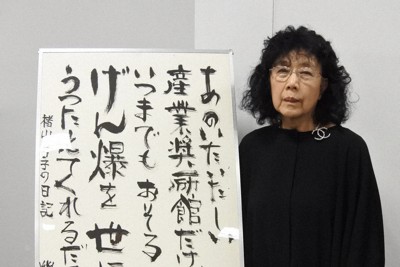 あのいたいたしい
産業奨励館だけ
いつまでもおそる
げん爆を世に
うったえてくれるだ
子の日記